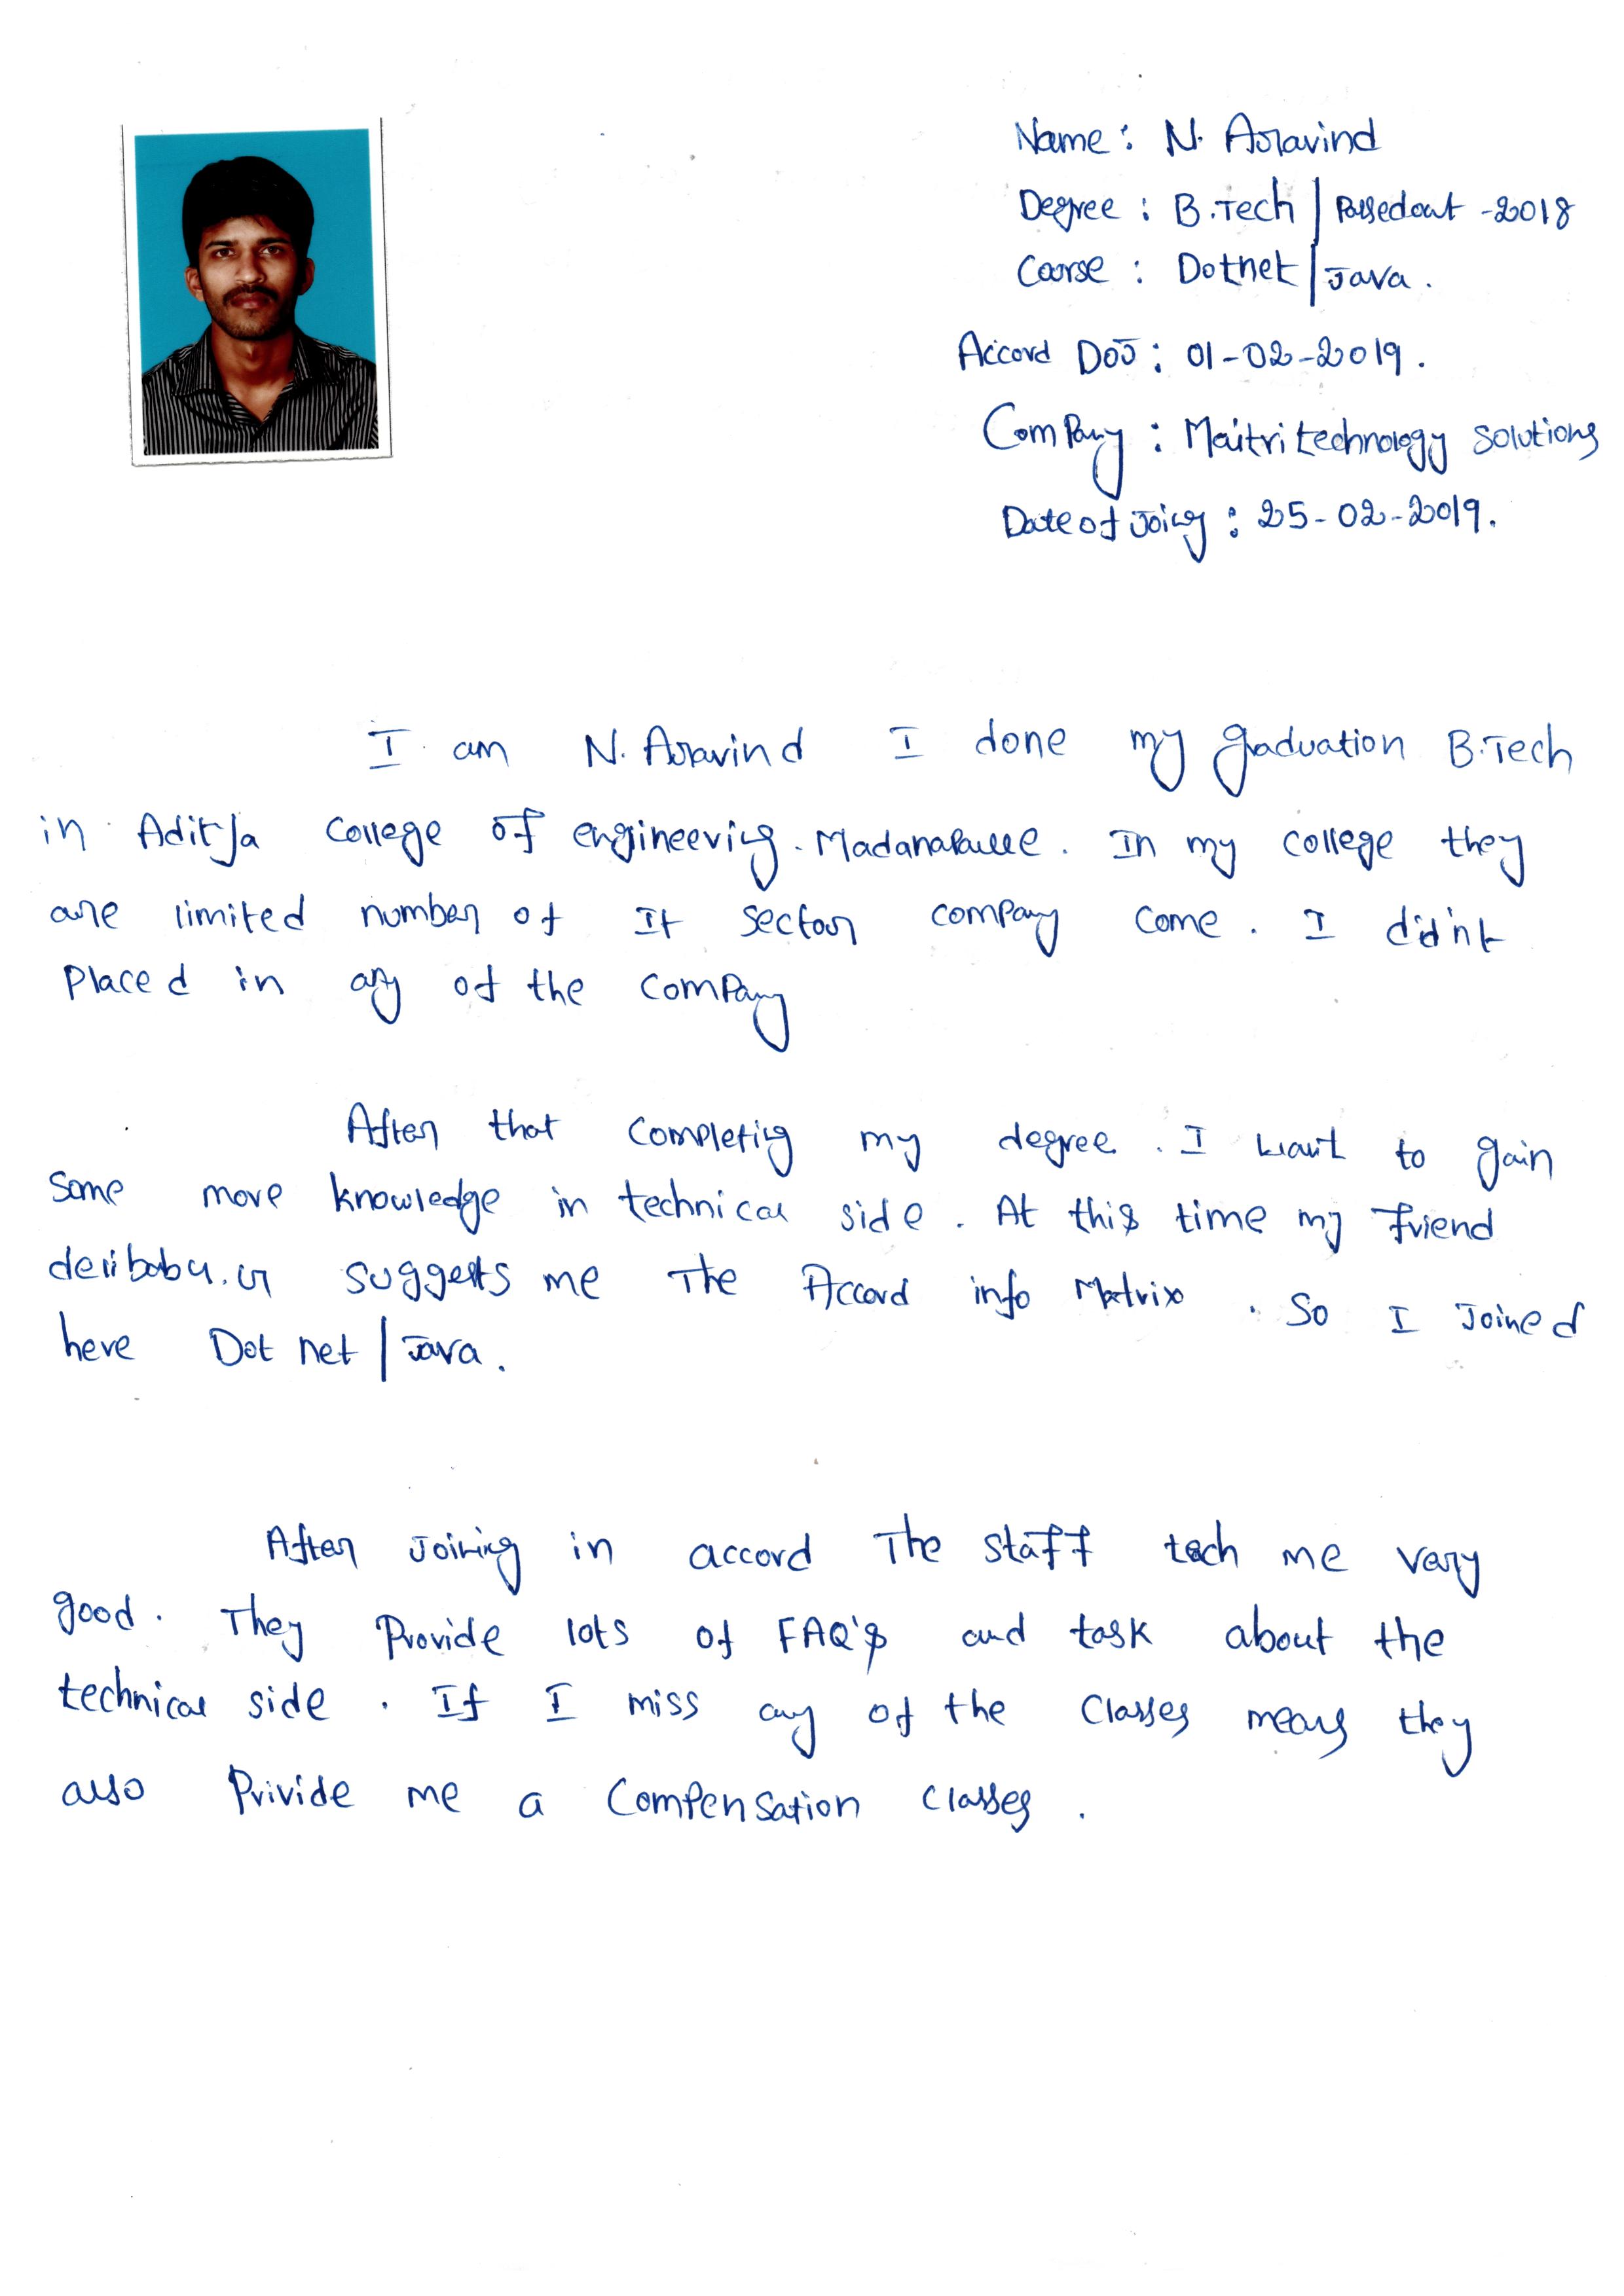 Name : N. Aravind
Degree : B.Tech | Passedout - 2018
Course : Dotnet | Java .
Accord DOJ : 01-02-2019 .
Company : Maitri technology solutions
Date of Joing : 25-02-2019 .
I am N. Aravind I done my graduation B.Tech
in Aditya College of engineering . Madanapalle . In my college they
are limited number of It sector company come . I didn't
Placed in any of the Company
After that completing my degree . I want to gain
some more knowledge in technical side . At this time my friend
suggests me The Accord info Matrix . So I Joined
here Dot net | Java .
After Joining in accord The staff tech me very
good . They Provide lots of FAQ's and task about the
technical side . If I miss any of the Classes means they
also Privide me a Compensation classes .